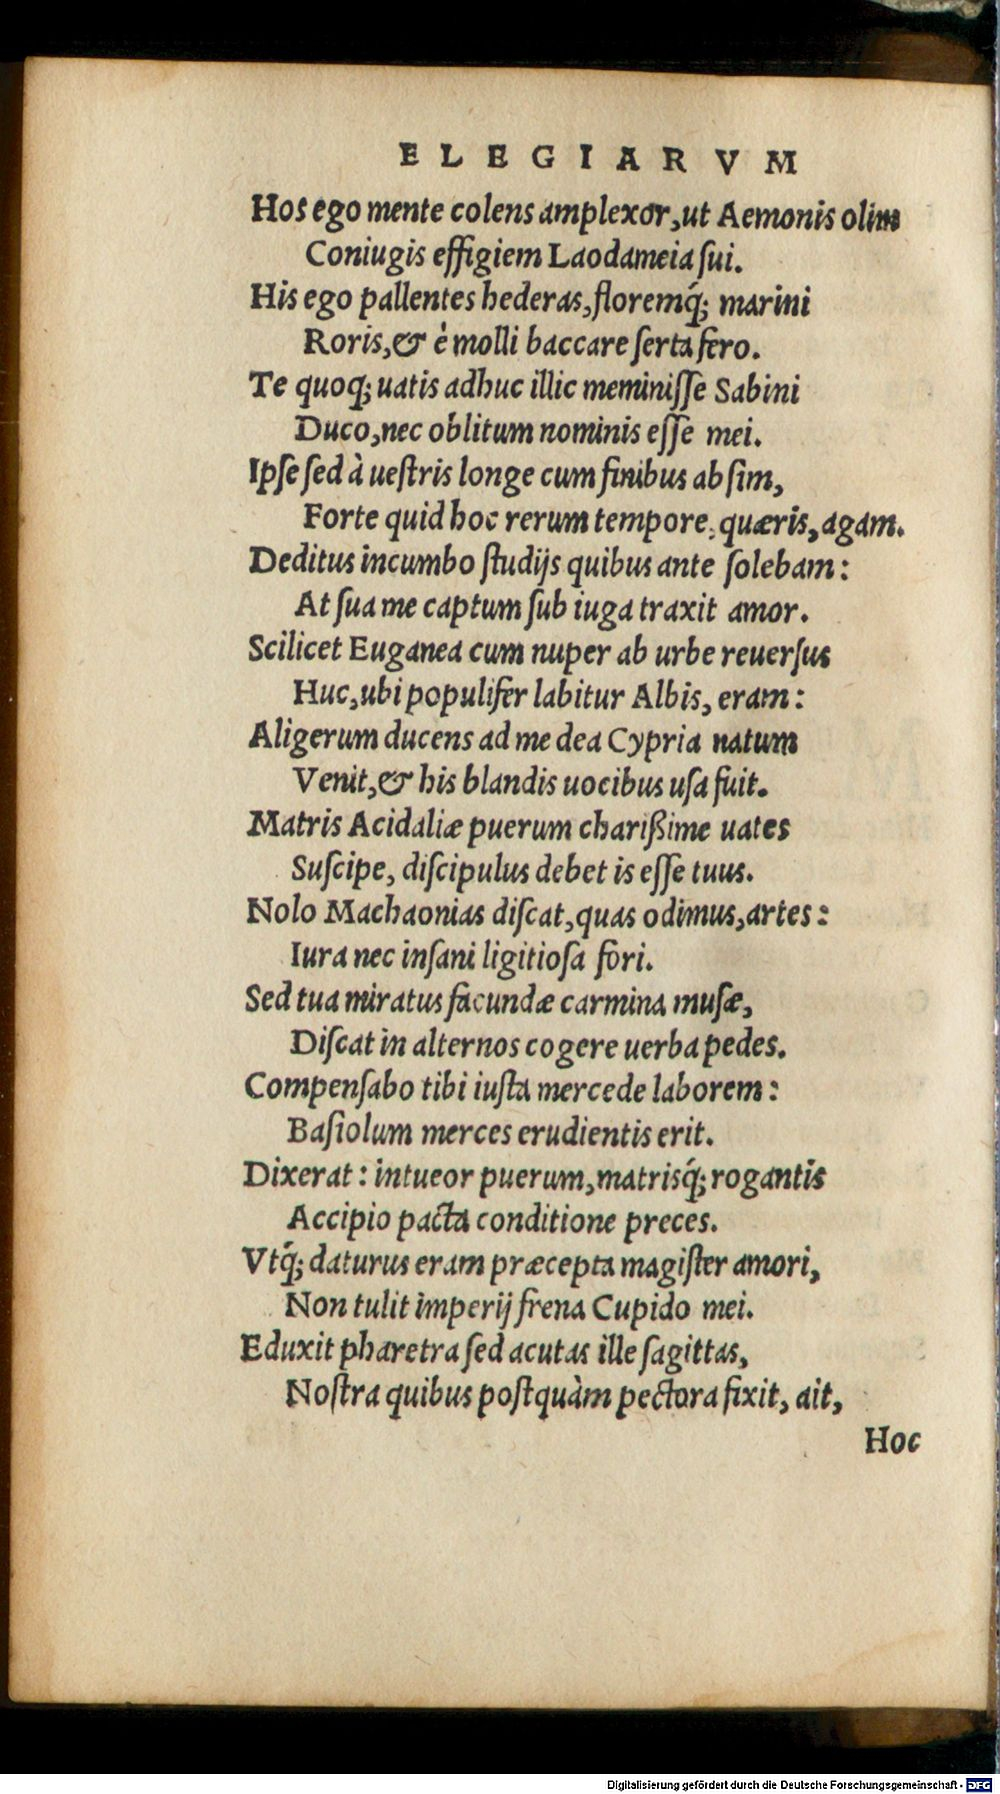 ELEGIARVM
Hos ego mente colens amplexor, ut Aemonis olim
Coniugis effigiem Laodameia ſui.
His ego pallentes hederas, floremq́; marini
Roris, & è molli baccare ſerta fero.
Te quoq; uatis adhuc illic meminiſſe Sabini
Duco, nec oblitum nominis eſſe mei.
Ipſe ſed à ueſtris longe cum finibus abſim,
Forte quid hoc rerum tempore, quæris, agam.
Deditus incumbo ſtudijs quibus ante ſolebam:
At ſua me captum ſub iuga traxit amor.
Scilicet Euganea cum nuper ab urbe reuerſus
Huc, ubi populifer labitur Albis, eram:
Aligerum ducens ad me dea Cypria natum
Venit, & his blandis uocibus uſa fuit.
Matris Acidaliæ puerum charißime uates
Suſcipe, diſcipulus debet is eſſe tuus.
Nolo Machaonias diſcat, quas odimus, artes:
Iura nec inſani ligitioſa fori.
Sed tua miratus facundæ carmina muſæ,
Diſcat in alternos cogere uerba pedes.
Compenſabo tibi iuſta mercede laborem:
Baſiolum merces erudientis erit.
Dixerat: intueor puerum, matrisq́; rogantis
Accipio pacta conditione preces.
Vtq́; daturus eram præcepta magiſter amori,
Non tulit imperij frena Cupido mei.
Eduxit pharetra ſed acutas ille ſagittas,
Noſtra quibus poſtquàm pectora fixit, ait,
Hoc
Digitalisierung gefördert durch die Deutsche Forschungsgemeinschaft - DFG